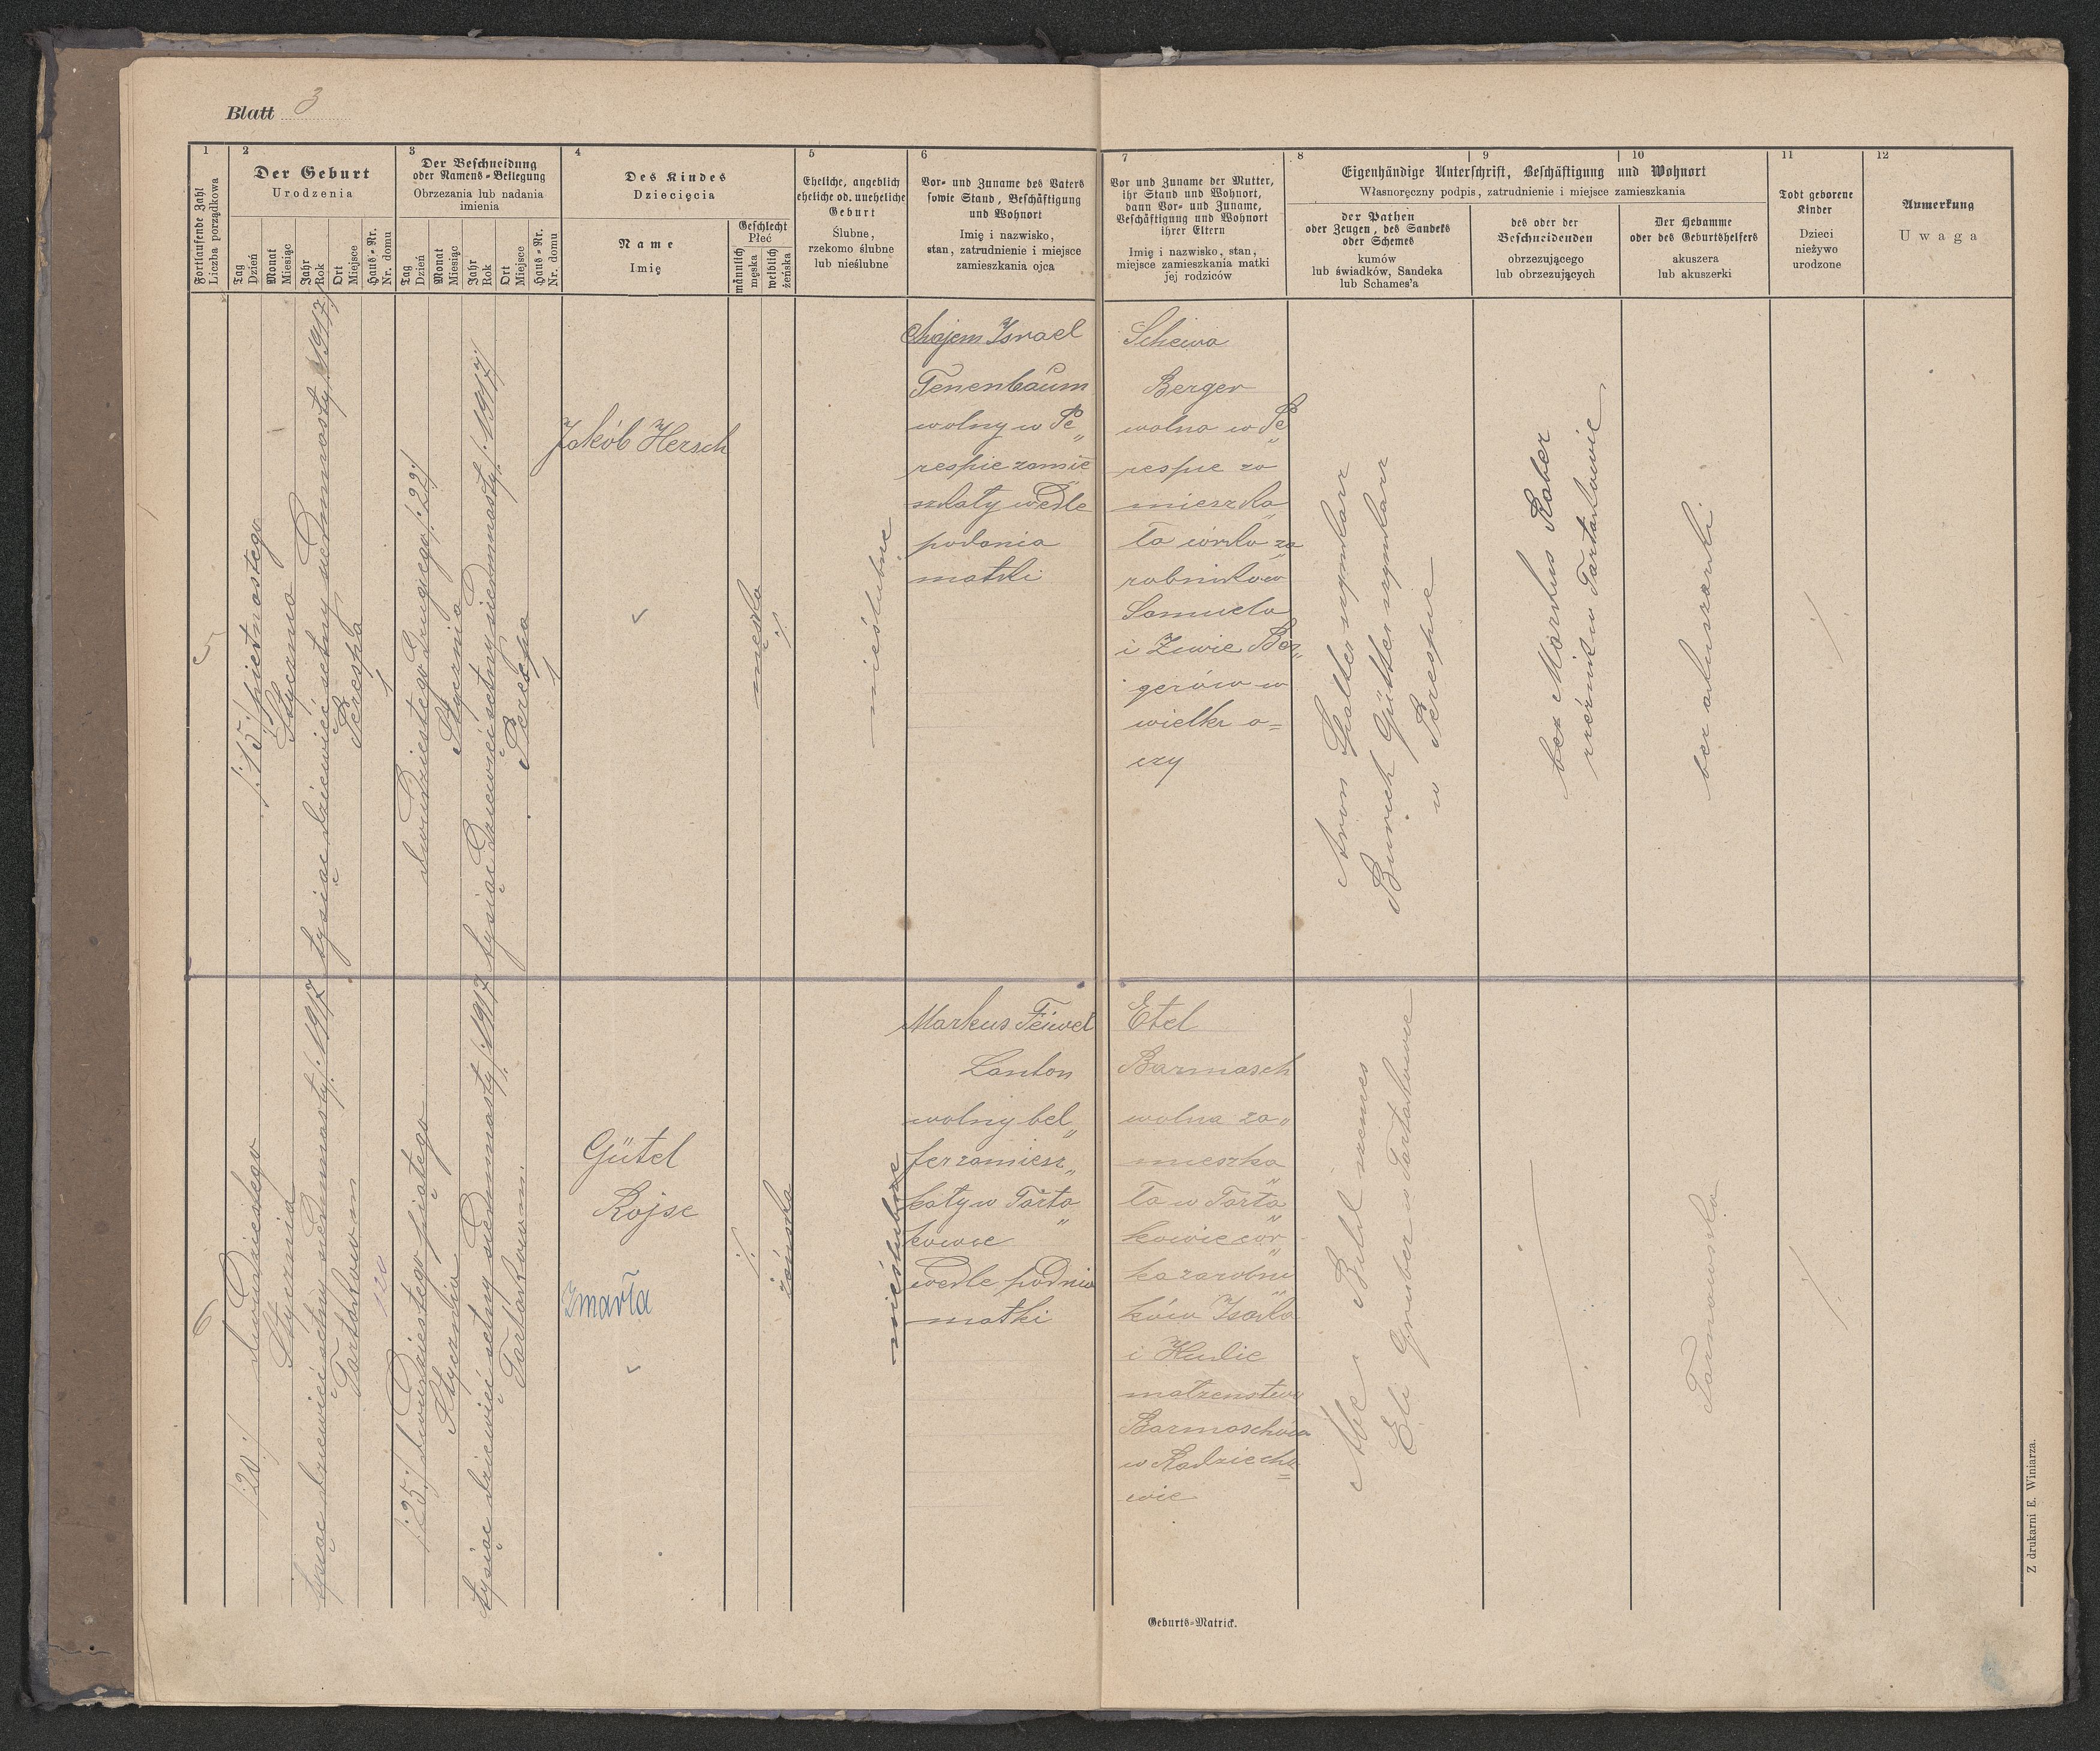 Blatt 3
1
Fortlaufende Zahl
Liczba porządkowa
2
Der Geburt
Urodzenia
Tag
Dzień
Monat
Miesiąc
Jahr
Rok
Ort
Miejsce
Haus-Nr.
Nr. domu
3
Der Beschneidung
oder Namens-Beilegung
Obrzezania lub nadania
imienia
Tag
Dzień
Monat
Miesiąc
Jahr
Rok
Ort
Miejsce
Haus-Nr.
Nr. domu
4
Des Kindes
Dziecięcia
Name
Imię
Geschlecht
Płeć
männlich
męska
weiblich
żeńska
5
Eheliche, angeblich
eheliche od. uneheliche
Geburt
Ślubne,
rzekomo ślubne
lub nieślubne
6
Vor- und Zuname des Vaters
sowie Stand, Beschäftigung
und Wohnort
Imię i nazwisko,
stan, zatrudnienie i miejsce
zamieszkania ojca
7
Vor und Zuname der Mutter,
ihr Stand und Wohnort,
dann Vor- und Zuname,
Beschäftigung und Wohnort
ihrer Eltern
Imię i nazwisko, stan,
miejsce zamieszkania matki
jej rodziców
Eigenhändige Unterschrift, Beschäftigung und Wohnort
Własnoręczny podpis, zatrudnienie i miejsce zamieszkania
8
der Pathen
oder Zeugen, des Sandeks
oder Schemes
kumów
lub świadków, Sandeka
lub Schames'a
9
des oder der
Beschneidenden
obrzezującego
lub obrzezujących
10
Der Hebamme
oder des Geburtshelfers
akuszera
lub akuszerki
11
Todt geborene
Kinder
Dzieci
nieżywo
urodzone
12
Anmerkung
Uwaga
5
/:15:/ piętnastego
Stycznia
tysiąc dziewięć setny siedmnasty /:1917:/
Perespa
1
dwudziestego drugiego /:22:/
Stycznia
tysiąc dziewięć setny siedmnasty /:1917:/
Perespa
1
Jakób Hersch
męska
./.
nieślubne
Chajem Israel
Tenenbaum
wolny w Pe„
respie zamie„
szkały wedle
podania
matki
Scheiwa
Berger
wolna w Pe„
respie za
mieszka„
ła córka za„
robników
Samuela
i Ziwie Ber„
gerów w
wielki o=
czy
Aron Halter szynkarz
Burich Gütter szynkarz
w Perespie
ber Markus Raber
rzeźnik w Tartakowie
bez akuszerki
./.
6
/:20:/ dwudziestego
Stycznia
tysiąc dziewięć setny siedmnasty /:1917
Tartaków m
120
/:25:/ dwudziestego piątego
Stycznia
tysiąc dziewięć setny siedmnasty /:1917
Tartaków m.
Gütel
Rojse
Zmarła
./.
żeńska
nieślubne
Markus Feiwel
Lanton
wolny bel„
fer zamiesz„
kały w Tarta„
kowie
wedle podnia
matki
Etel
Barmasch
wolna za„
mieszka„
ła w Tarta„
kowie cór„
ka zarobni„
ków Isaka
i Hudie
małżeństwa
Barmaschów
w Radziecho=
wie
Eli Gruber w Tartakowie
Tarnawska
./.
Geburts-Matrick.
Z drukarni E. Winiarza.